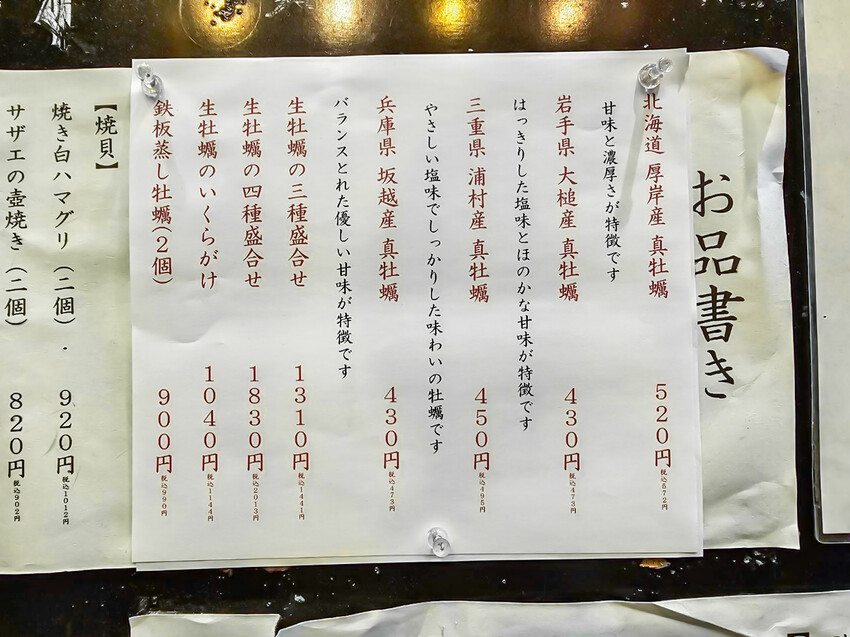 お品書き
北海道 厚岸産 真牡蠣 520円 税込572円
甘味と濃厚さが特徴です
岩手県 大槌産 真牡蠣 430円 税込473円
はっきりした塩味とほのかな甘味が特徴です
三重県 浦村産 真牡蠣 450円 税込495円
やさしい塩味でしっかりした味わいの牡蠣です
兵庫県 坂越産 真牡蠣 430円 税込473円
バランスとれた優しい甘味が特徴です
生牡蠣の三種盛合せ 1310円 税込1441円
生牡蠣の四種盛合せ 1830円 税込2013円
生牡蠣のいくらがけ 1040円 税込1144円
鉄板蒸し牡蠣(2個) 900円 税込990円
【焼貝】
焼き白ハマグリ(二個)・ 920円 税込1012円
サザエの壺焼き(二個) 820円 税込902円